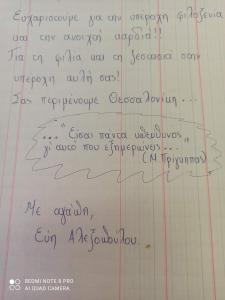 Ευχαριστούμε για την υπέροχη φιλοξενία
και την ανοιχτή καρδιά!!
Για τη φιλία και τη ζεστασιά στην
υπέροχη αυλή σας!
Σας περιμένουμε Θεσσαλονίκη...
..."Είσαι πάντα υπεύθυνος
γι' αυτό που εξημερώνεις..."
(Μ Πρίγκηπας)
Με αγάπη,
Εύη Αλεξοπούλου.
REDMI NOTE 8 PRO
AI QUAD CAMERA